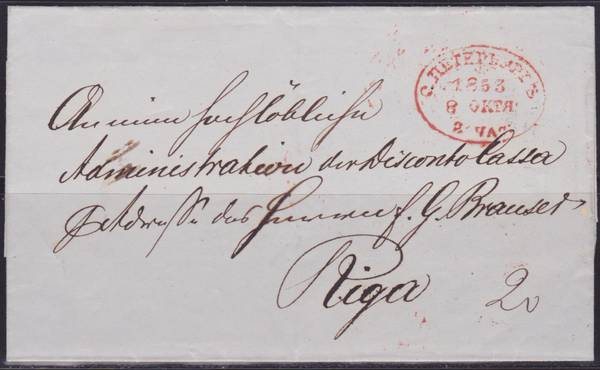 С. ПЕТЕРБУРГЪ
1853
8 ОКТЯ.
2 ЧАС
An eine hochlöbliche
Administration der Disconto Cassa
Adresse des Herren f. G. Brauser
Riga
20